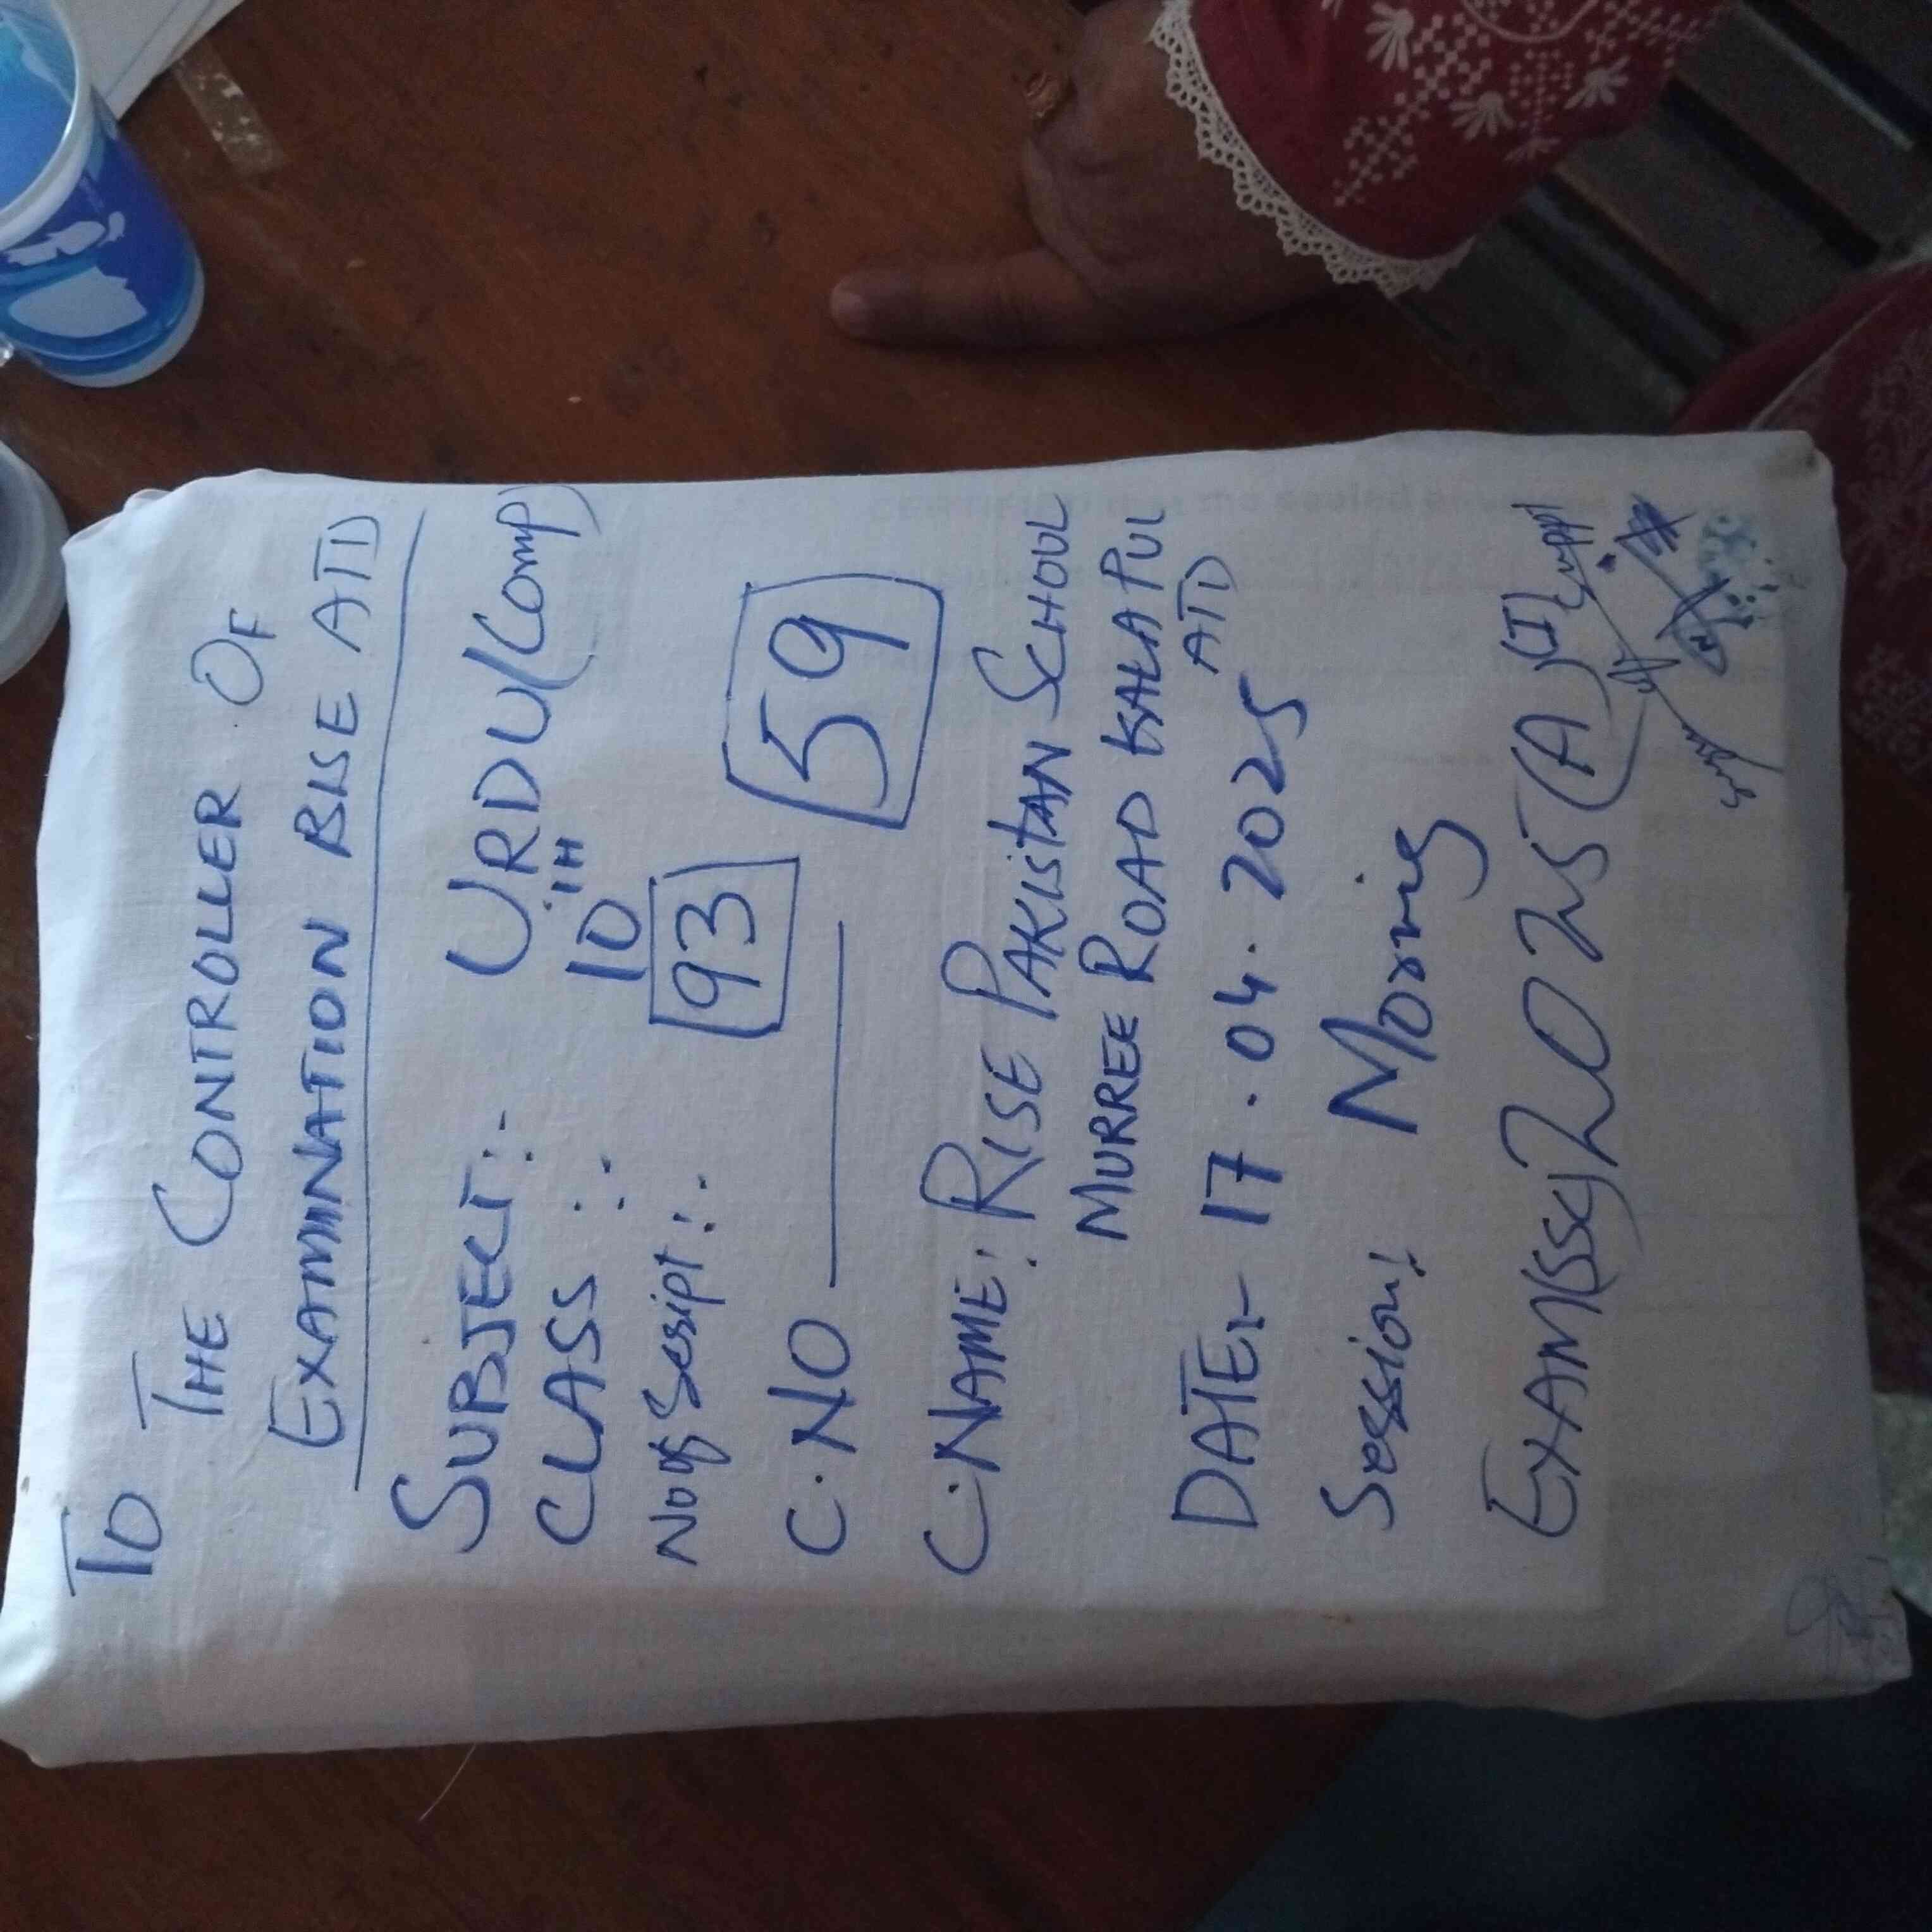 TO
THE CONTROLLER OF
EXAMINATION BISE ATD
SUBJECT:- URDU (Comp)
CLASS :- 10TH
No of Script:- 93
C.NO 59
C.NAME: RISE PAKISTAN SCHOOL
MURREE ROAD KALA PUL
ATD
DATE:- 17.04.2025
Session: Morning
EXAM(SSC) 2025 (A)(I)